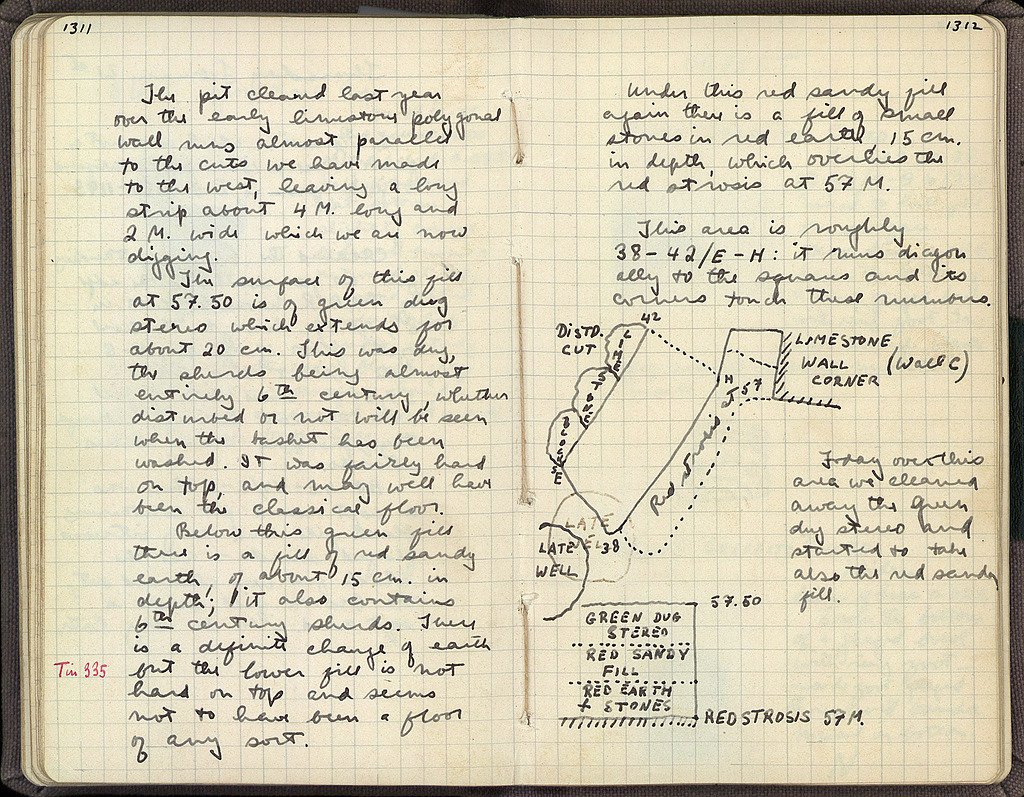 1311
The pit cleared last year
over the early limestone polygonal
wall runs almost parallel
to the cuts we have made
to the west, leaving a long
strip about 4 M. long and
2 M. wide which we are now
digging.
The surface of this fill
at 57.50 is of green dug
stereo which extends for
about 20 cm. This was dug,
the sherds being almost
entirely 6th century, whether
disturbed or not will be seen
when the basket has been
washed. It was fairly hard
on top, and may well have
been the classical floor.
Below this green fill
there is a fill of red sandy
earth, of about 15 cm. in
depth; it also contains
6th century sherds. There
is a definite change of earth
Tin 335
but the lower fill is not
hard on top and seems
not to have been a floor
of any sort.
1312
Under this red sandy fill
again there is a fill of small
stones in red earth, 15 cm.
in depth, which overlies the
red strosis at 57 M.
This area is roughly
38-42/E-H: it runs diagon
ally to the squares and its
corners touch these numbers.
42
DISTD.
CUT
LIME
STONE
BLOCKS
E
H
Red strosis at 57
LIMESTONE
WALL
CORNER
(Wall C)
LATE
WELL
38
LATE
WELL
Today over this
area we cleaned
away the green
dug stereo and
started to take
also the red sandy
fill.
57.50
GREEN DUG
STEREO
RED SANDY
FILL
RED EARTH
+ STONES
RED STROSIS 57M.